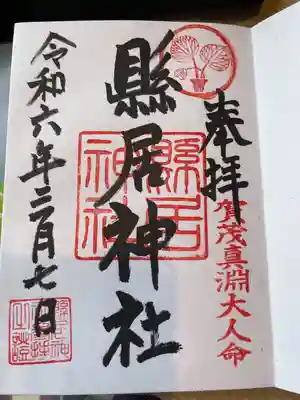 奉拝
賀茂真淵大人命
縣居神社
縣居
神社
令和六年三月七日